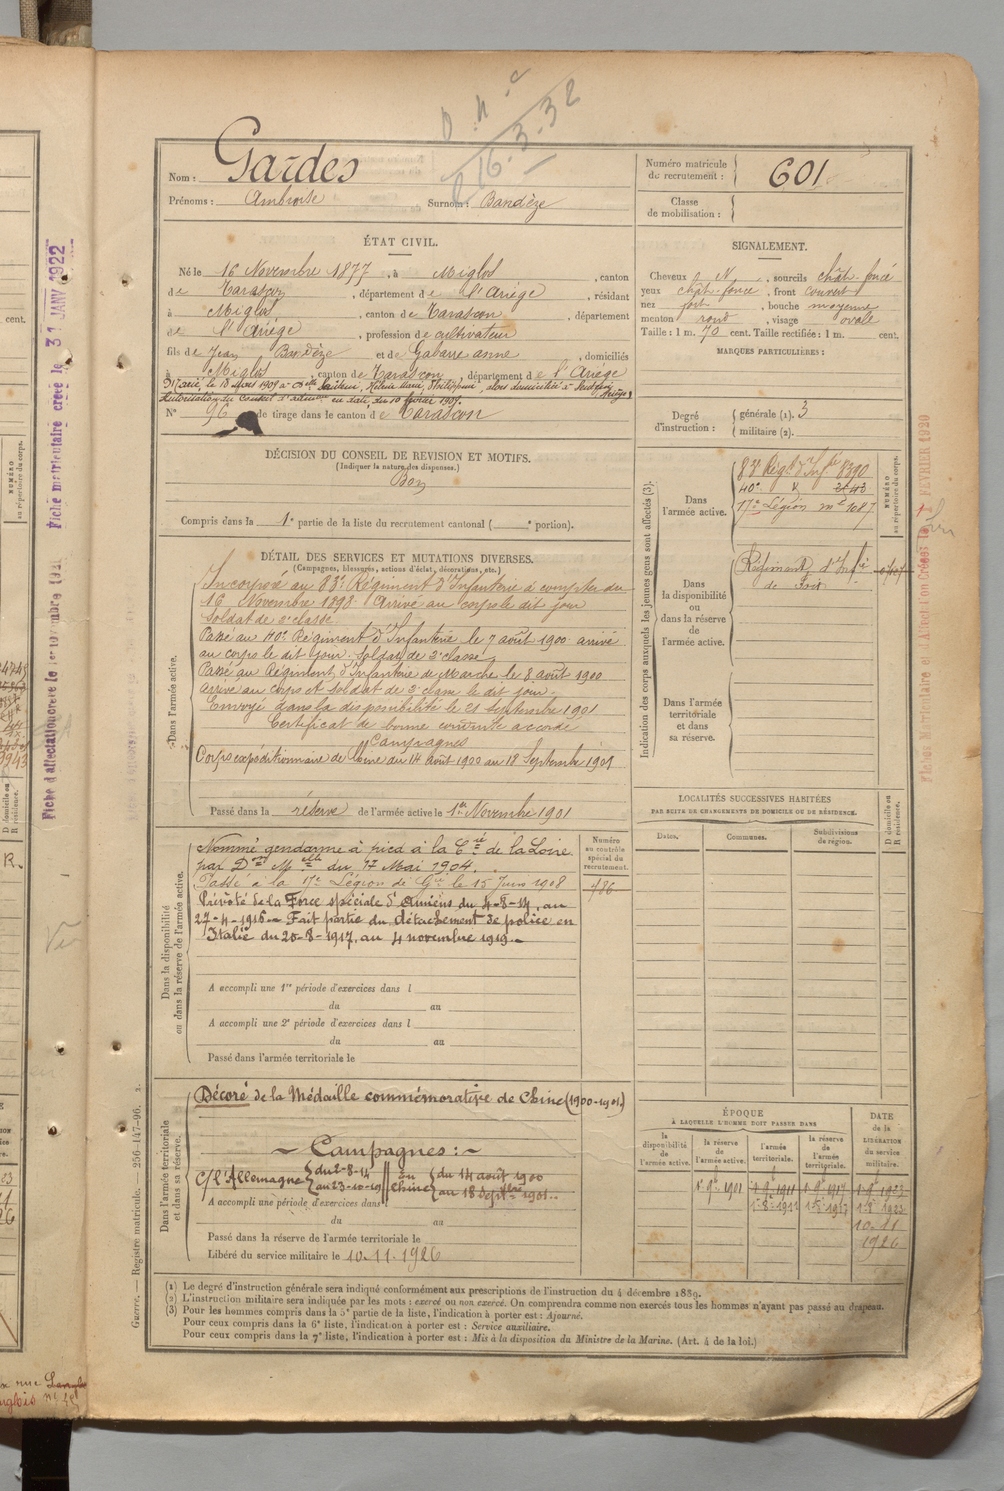 D. N. C
16.3.32
Nom : Gardes
Prénoms : Ambroise Surnom : Bandèze
Numéro matricule de recrutement : 601
Classe de mobilisation :
ÉTAT CIVIL.
Né le 16 Novembre 1877, à Miglos, canton
de Tarascon, département de l'Ariège, résidant
à Miglos, canton de Tarascon, département
de l'Ariège, profession de cultivateur
fils de Jean Bandèze et de Gabarre anne, domiciliés
à Miglos, canton de Tarascon, département de l'Ariège
Marié, le 18 Mars 1909 à
Autorisation du Conseil d'
en date du 10 février 1909.
N° 96 de tirage dans le canton de Tarascon
SIGNALEMENT.
Cheveux N, sourcils chât. foncé
yeux chât. foncé, front couvert
nez fort, bouche moyenne
menton rond, visage ovale
Taille : 1 m. 70 cent. Taille rectifiée : 1 m. cent.
MARQUES PARTICULIÈRES :
Degré d'instruction : générale (1). 3
militaire (2).
DÉCISION DU CONSEIL DE REVISION ET MOTIFS.
(Indiquer la nature des dispenses.)
Bon
Compris dans la 1e partie de la liste du recrutement cantonal ( e portion).
DÉTAIL DES SERVICES ET MUTATIONS DIVERSES.
(Campagnes, blessures, actions d'éclat, décorations, etc.)
Dans l'armée active.
Incorporé au 83e Régiment d'Infanterie à compter du
16 Novembre 1898. Arrivé au corps le dit jour
Soldat de 2e classe.
Passé au 40e Régiment d'Infanterie le 7 août 1900 arrivé
au corps le dit jour. Soldat de 2e classe
Passé au Régiment d'Infanterie de Marche le 8 août 1900
arrivé au corps et soldat de 2e classe le dit jour.
Envoyé dans la disponibilité le 21 septembre 1901
Certificat de bonne conduite accordé
Campagnes
Corps expéditionnaire de Chine du 14 août 1900 au 18 Septembre 1901
Passé dans la réserve de l'armée active le 1er Novembre 1901
Indication des corps auxquels les jeunes gens sont affectés (3).
NUMÉRO au répertoire du corps.
Dans l'armée active.
83e Régt d'Infie 8390
40e
17e Légion mle 1087
Dans la disponibilité ou dans la réserve de l'armée active.
Régiment d'Infie
de Foix
Dans l'armée territoriale et dans sa réserve.
LOCALITÉS SUCCESSIVES HABITÉES
PAR SUITE DE CHANGEMENTS DE DOMICILE OU DE RÉSIDENCE.
Dates. Communes. Subdivisions de région.
D domicile ou R résidence.
Dans la disponibilité ou dans la réserve de l'armée active.
Numéro au contrôle spécial du recrutement.
Nommé gendarme à pied à la Cie de la Loire
par Don Mlle du 17 Mai 1904.
Passé à la 17e Légion de Gie le 15 Juin 1908
486
Prévôté de la Force spéciale d'Amiens du 4-8-14, au
27-4-1916 - Fait partie du détachement de police en
Italie du 20-8-1917, au 4 novembre 1919.
A accompli une 1re période d'exercices dans l
du au
A accompli une 2e période d'exercices dans l
du au
Passé dans l'armée territoriale le
Dans l'armée territoriale et dans sa réserve.
Décoré de la Médaille commémorative de Chine (1900-1901)
Campagnes :
C/ l'Allemagne du 2-8-14 au 23-10-19
en Chine du 14 août 1900 au 18 septbre 1901
A accompli une période d'exercices dans l
du au
Passé dans la réserve de l'armée territoriale le
Libéré du service militaire le 10.11.1926
ÉPOQUE
À LAQUELLE L'HOMME DOIT PASSER DANS
la disponibilité de l'armée active. la réserve de l'armée active. l'armée territoriale. la réserve de l'armée territoriale.
DATE de la LIBÉRATION du service militaire.
1 9bre 1901 1 9bre 1911 1 9bre 1917 1 9bre 1923
10.11
1926
(1) Le degré d'instruction générale sera indiqué conformément aux prescriptions de l'instruction du 4 décembre 1889.
(2) L'instruction militaire sera indiquée par les mots : exercé ou non exercé. On comprendra comme non exercés tous les hommes n'ayant pas passé au drapeau.
(3) Pour les hommes compris dans la 5e partie de la liste, l'indication à porter est : Ajourné.
Pour ceux compris dans la 6e liste, l'indication à porter est : Service auxiliaire.
Pour ceux compris dans la 7e liste, l'indication à porter est : Mis à la disposition du Ministre de la Marine. (Art. 4 de la loi.)
Guerre. — Registre matricule. — 256-147-96.
Fiche matriculaire créée le 31 JANV 1922
Fiche d'affectation créée le 1er novembre
FEVRIER 1920